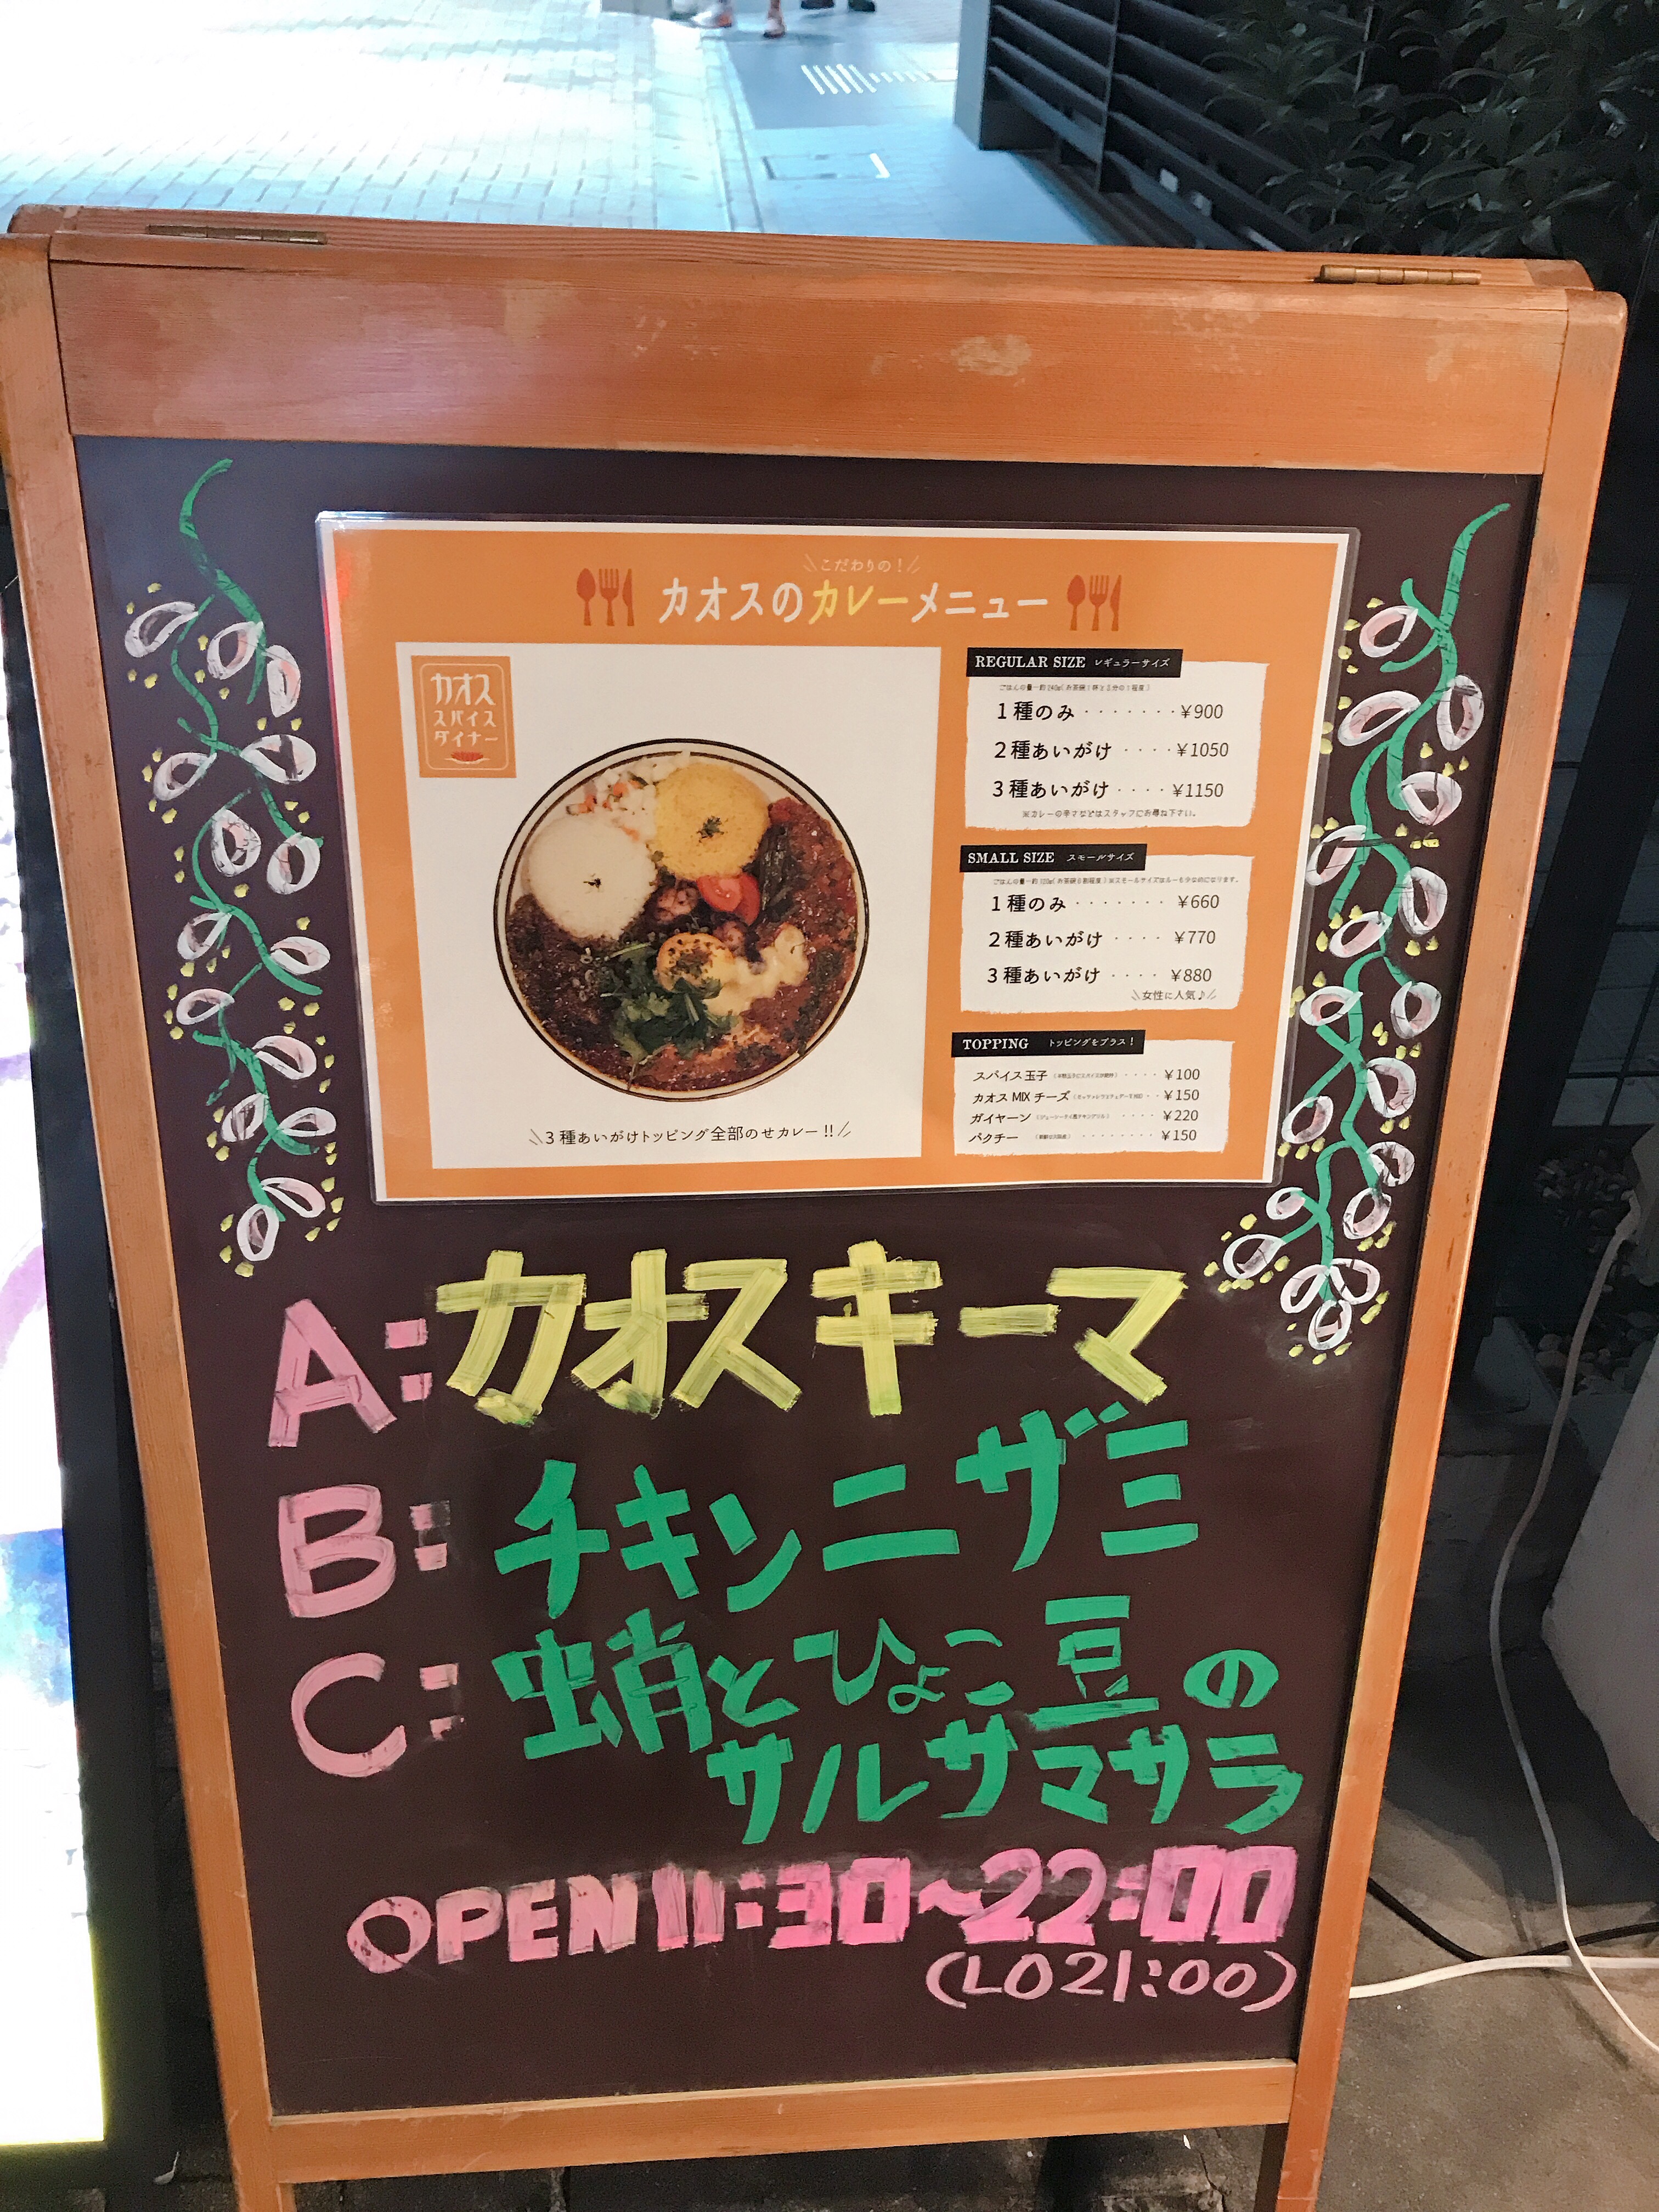 こだわりの!
カオスのカレーメニュー
カオス
スパイス
ダイナー
3種あいがけトッピング全部のせカレー!!
REGULAR SIZE レギュラーサイズ
1種のみ ・・・・・・・¥900
2種あいがけ ・・・・¥1050
3種あいがけ ・・・・¥1150
※カレーの辛さなどはスタッフにお尋ね下さい。
SMALL SIZE スモールサイズ
1種のみ ・・・・・・・ ¥660
2種あいがけ ・・・・ ¥770
3種あいがけ ・・・・ ¥880
女性に人気♪
TOPPING トッピングをプラス!
スパイス玉子 ・・・・ ¥100
カオスMIXチーズ ・・ ¥150
ガイヤーン ・・・・ ¥220
パクチー ・・・・・・・・ ¥150
A:カオスキーマ
B:チキンニザミ
C:蛸とひよこ豆の
サルサマサラ
OPEN11:30~22:00
(LO21:00)